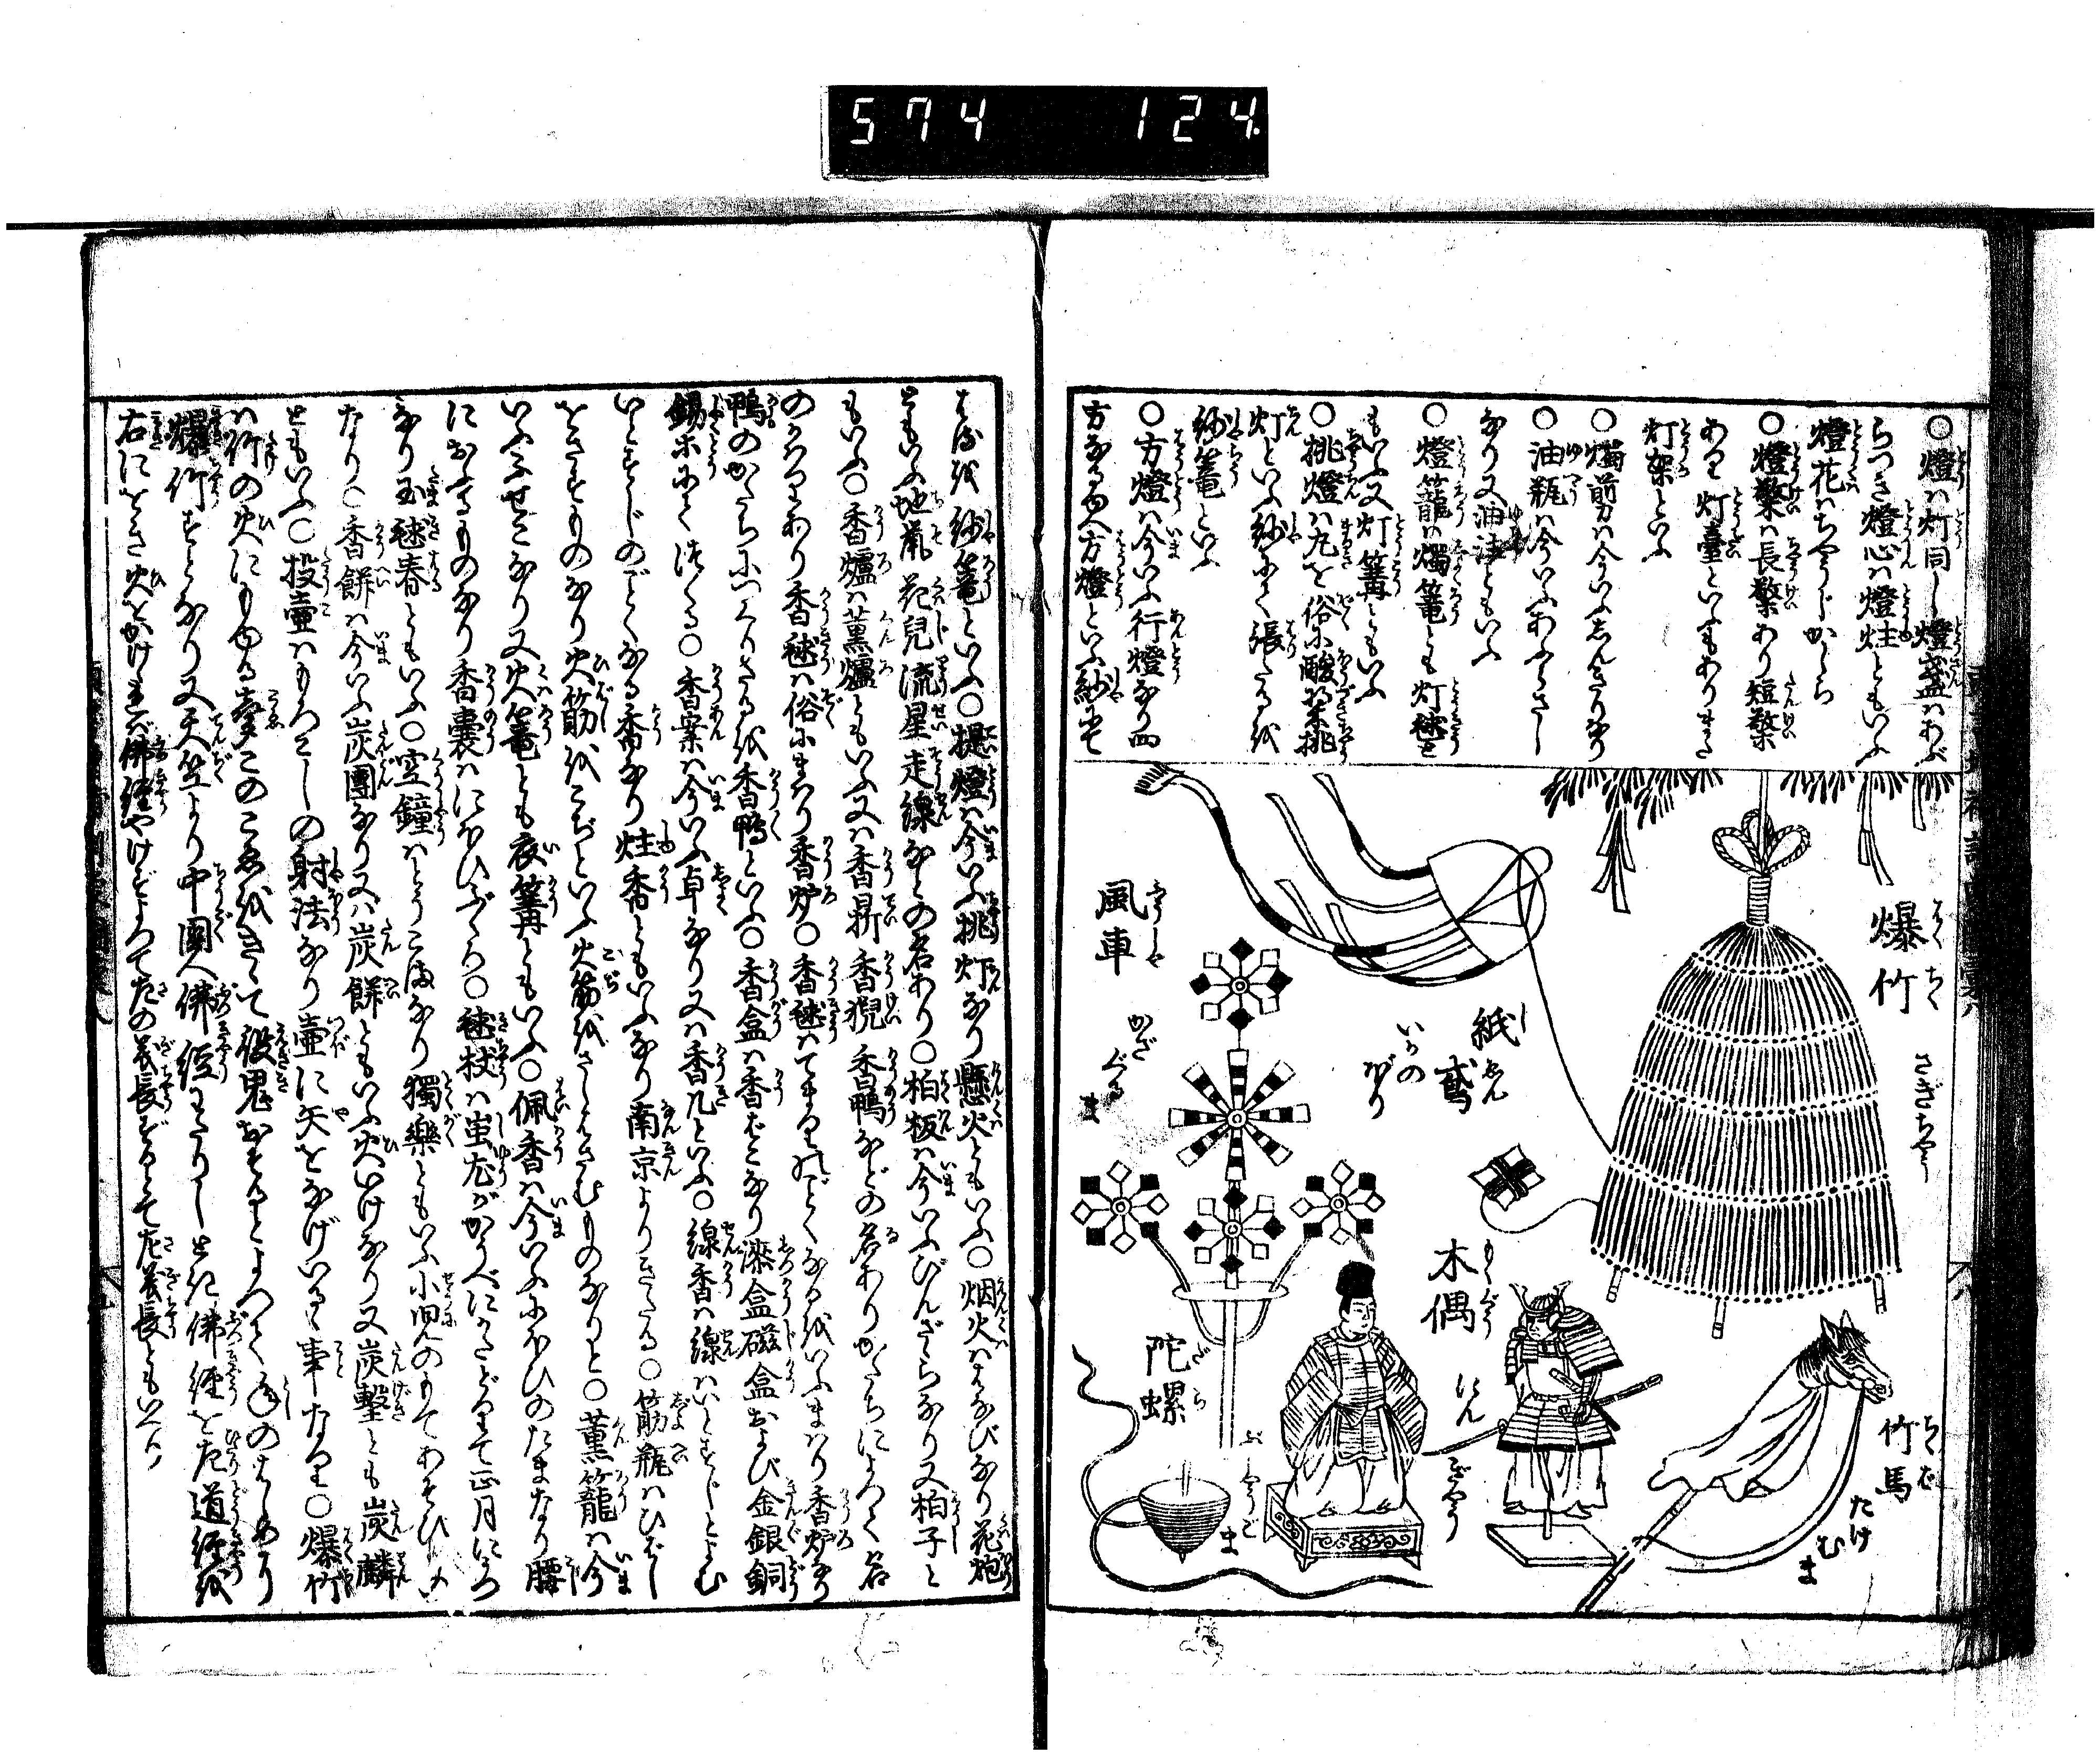 574 124
○燈は灯同し燈盞はあぶ
らつき燈心は燈炷ともいふ
燈花はちやうじかしら
○燈檠は長檠あり短檠
あり灯臺といふもあり
灯架といふ
○燭剪は今いふしんきりなり
○油瓶は今いふあぶらさし
なり又油注ともいふ
○燈籠は燭篭とも灯毬と
もいふ又灯篝ともいふ
○挑燈は丸を俗に酸漿挑
灯といふ紗にて張たるを
紗篭といふ
○方燈は今いふ行燈なり四
方なるゆへ方燈といふ紗にて
爆竹 はくちく さぎちやう
紙鳶 しゑん いかのぼり
風車 ふうしや かざぐるま
木偶 もくぐう にんぎやう
竹馬 ちくば たけむま
陀螺 だら ぶしやうごま
はるを紗篭といふ○提燈は今いふ挑灯なり懸火ともいふ○烟火ははなびなり花炮
ともいふ地鼠花兒流星走線などの名あり○柏板は今いふびんざさらなり又柏子と
もいふ○香爐は薫爐ともいふ又は香鼎香猊香鴨などの名ありかたちによつて名
のかはりあり香毬は俗にまはり香炉○香毬はてまりのごとくなるをいふまはり香炉なり
鴨のかたちにつくりたるを香鴨といふ○香盒は香ばこなり漆盒磁盒および金銀銅
錫等にてつくる○香案は今いふ卓なり又は香几といふ○線香は線はいとすじとよむ
いとすじのごとくなる香なり炷香ともいふなり南京よりきたる○筋瓶はひばし
をさすものなり火筋をこぢといふ火筋をさしはさむものなりと○薫籠は今
いふふせごなり又火篭とも衣篝ともいふ○佩香は今いふにほひのたまなり腰
におぶるものなり香嚢はにほひぶくろ○毬杖は蚩尤がかうべにかたどりて正月にうつ
なり玉毬春ともいふ○空鐘はとうごまなり獨樂ともいふ小児のもてあそひ
なり○香餅は今いふ炭團なり又は炭餅ともいふ火いけなり又炭墼とも炭麟
ともいふ○投壺はもろこしの射法なり壷に矢をなげいるゝ事なり○爆竹
は竹の火にもゆる声このこゑをきゝて役鬼おそるとよつて年のはじめより
爆竹することなり又天竺より中國へ佛経わたりしとき佛経を左道経を
右にをき火をかけしに佛経やけざるよつて左の義長ずるとて左義長ともいへり